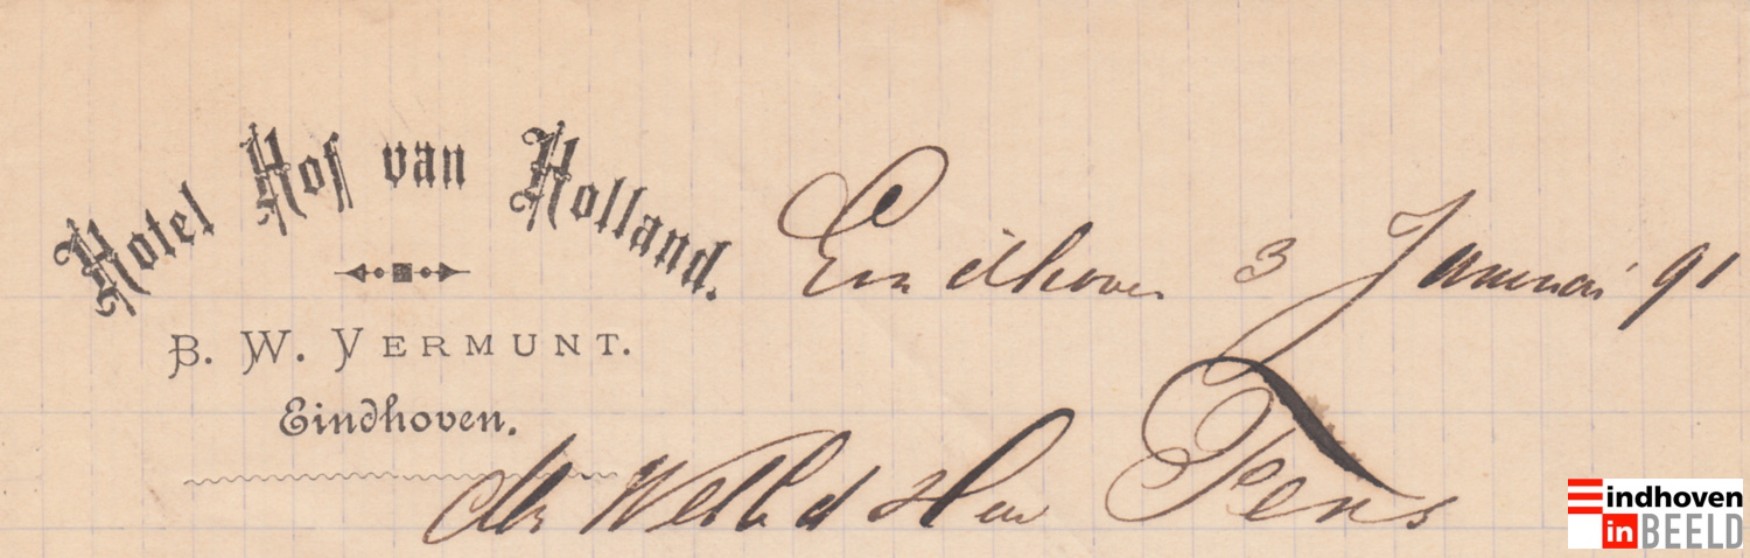 Hotel Hof van Holland.
B. W. VERMUNT.
Eindhoven.
Eindhoven 3 Januari 91
den WelEd Heer Fens
Eindhoven
in BEELD